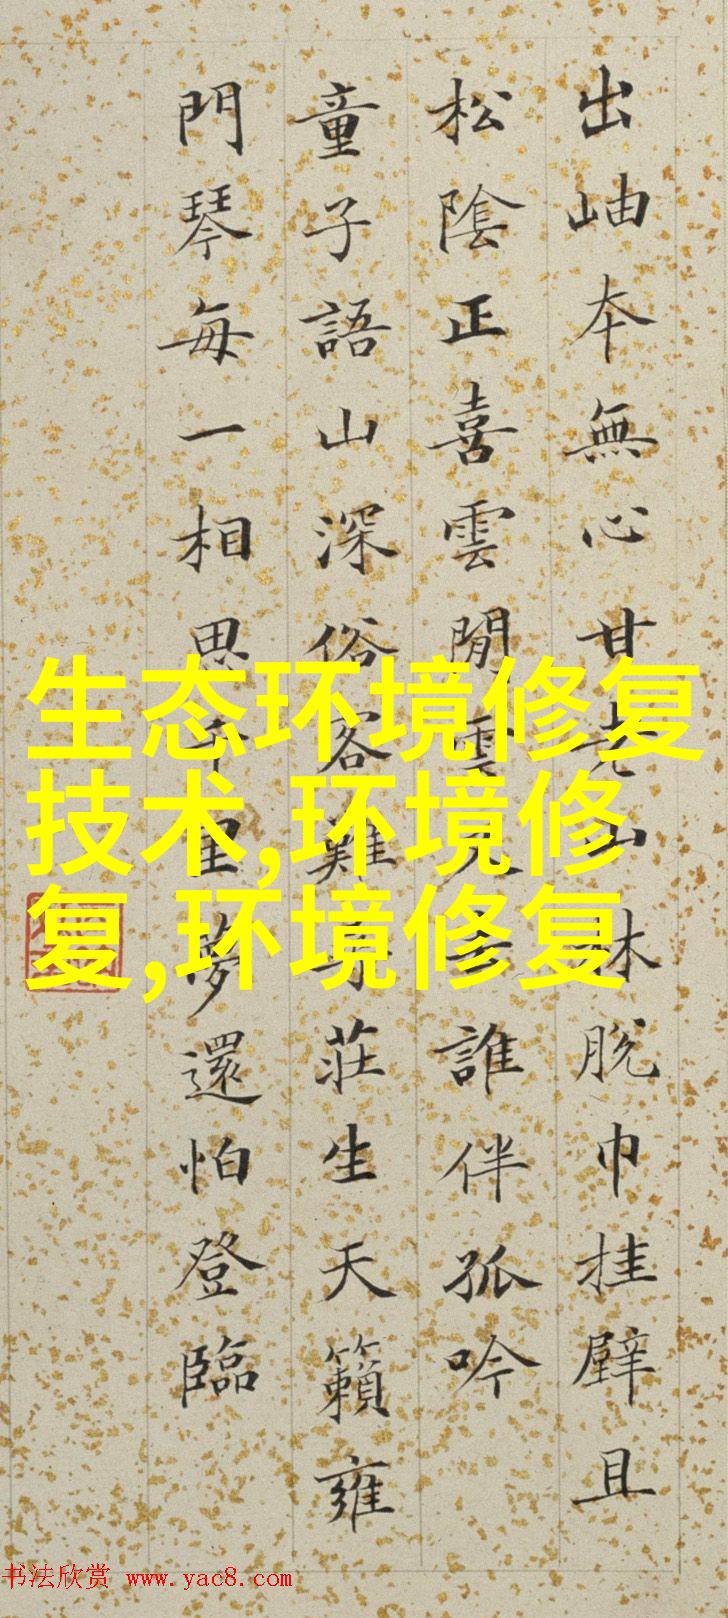 出岫本無心甘老山林脫巾挂壁且
松陰正喜雲閒雲又誰伴孤吟
童子語山深俗客難尋莊生天籟雍
門琴每一相思千里夢還怕登臨
生态环境修复
技术,环境修
复,环境修复
书法欣赏 www.yac8.com